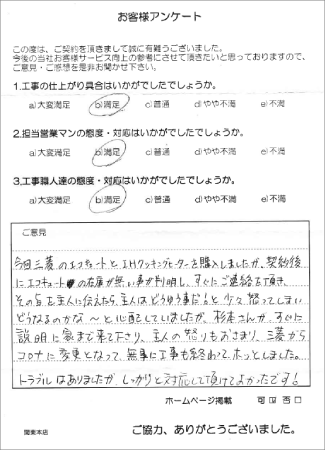 お客様アンケート
この度は、ご契約を頂きまして誠に有難うございました。
今後の当社お客様サービス向上の参考にさせて頂きたいと思っておりますので、
ご意見・ご感想を是非お聞かせ下さい。
1.工事の仕上がり具合はいかがでしたでしょうか。
a)大変満足 b)満足 c)普通 d)やや不満 e)不満
2.担当営業マンの態度・対応はいかがでしたでしょうか。
a)大変満足 b)満足 c)普通 d)やや不満 e)不満
3.工事職人達の態度・対応はいかがでしたでしょうか。
a)大変満足 b)満足 c)普通 d)やや不満 e)不満
ご意見
今回三菱のエコキュートと、IHクッキングヒーターを購入しましたが、契約後
にエコキュートの在庫が無い事が判明し、すぐにご連絡を頂き、
その旨を主人に伝えたら、主人はどうゆう事だ!と少々怒ってしまい
どうなるのかな〜と心配していましたが、杉本さんが、すぐに
説明に家まで来て下さり、主人の怒りもおさまり、三菱から
コロナに変更となって、無事に工事も終わって、ホッとしました。
トラブルはありましたが、しっかりと対応して頂けてよかったです!
ホームページ掲載 可 否
関東本店
ご協力、ありがとうございました。